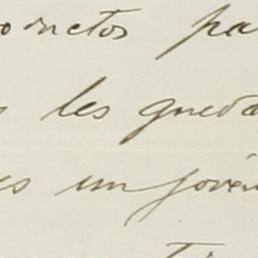 oductos pa
s les queda
es un jóve